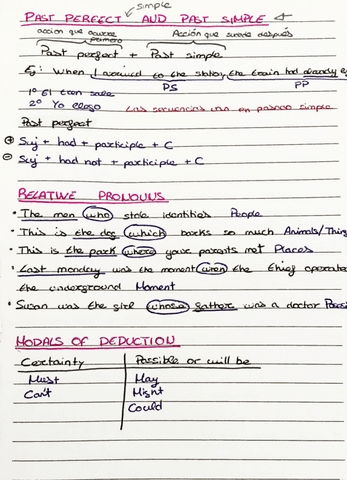 simple
PAST PERFECT AND PAST SIMPLE
acción que ocurre primero
Acción que sucede después
Past perfect + Past simple
Eg: When I arrived to the station, the train had already
PS PP
1º El tren sale
2º Yo llego Las secuencias van en pasado simple
Past perfect
+ Suj + had + participle + C
- Suj + had not + participle + C
RELATIVE PRONOUNS
• The men who stole identities People
• This is the dog which barks so much Animals/Thing
• This is the park where your parents met Places
• Last monday was the moment when the thief operated
the underground Moment
• Susan was the girl whose father was a doctor
MODALS OF DEDUCTION
Certainty Possible or will be
Must May
Can't Might
Could